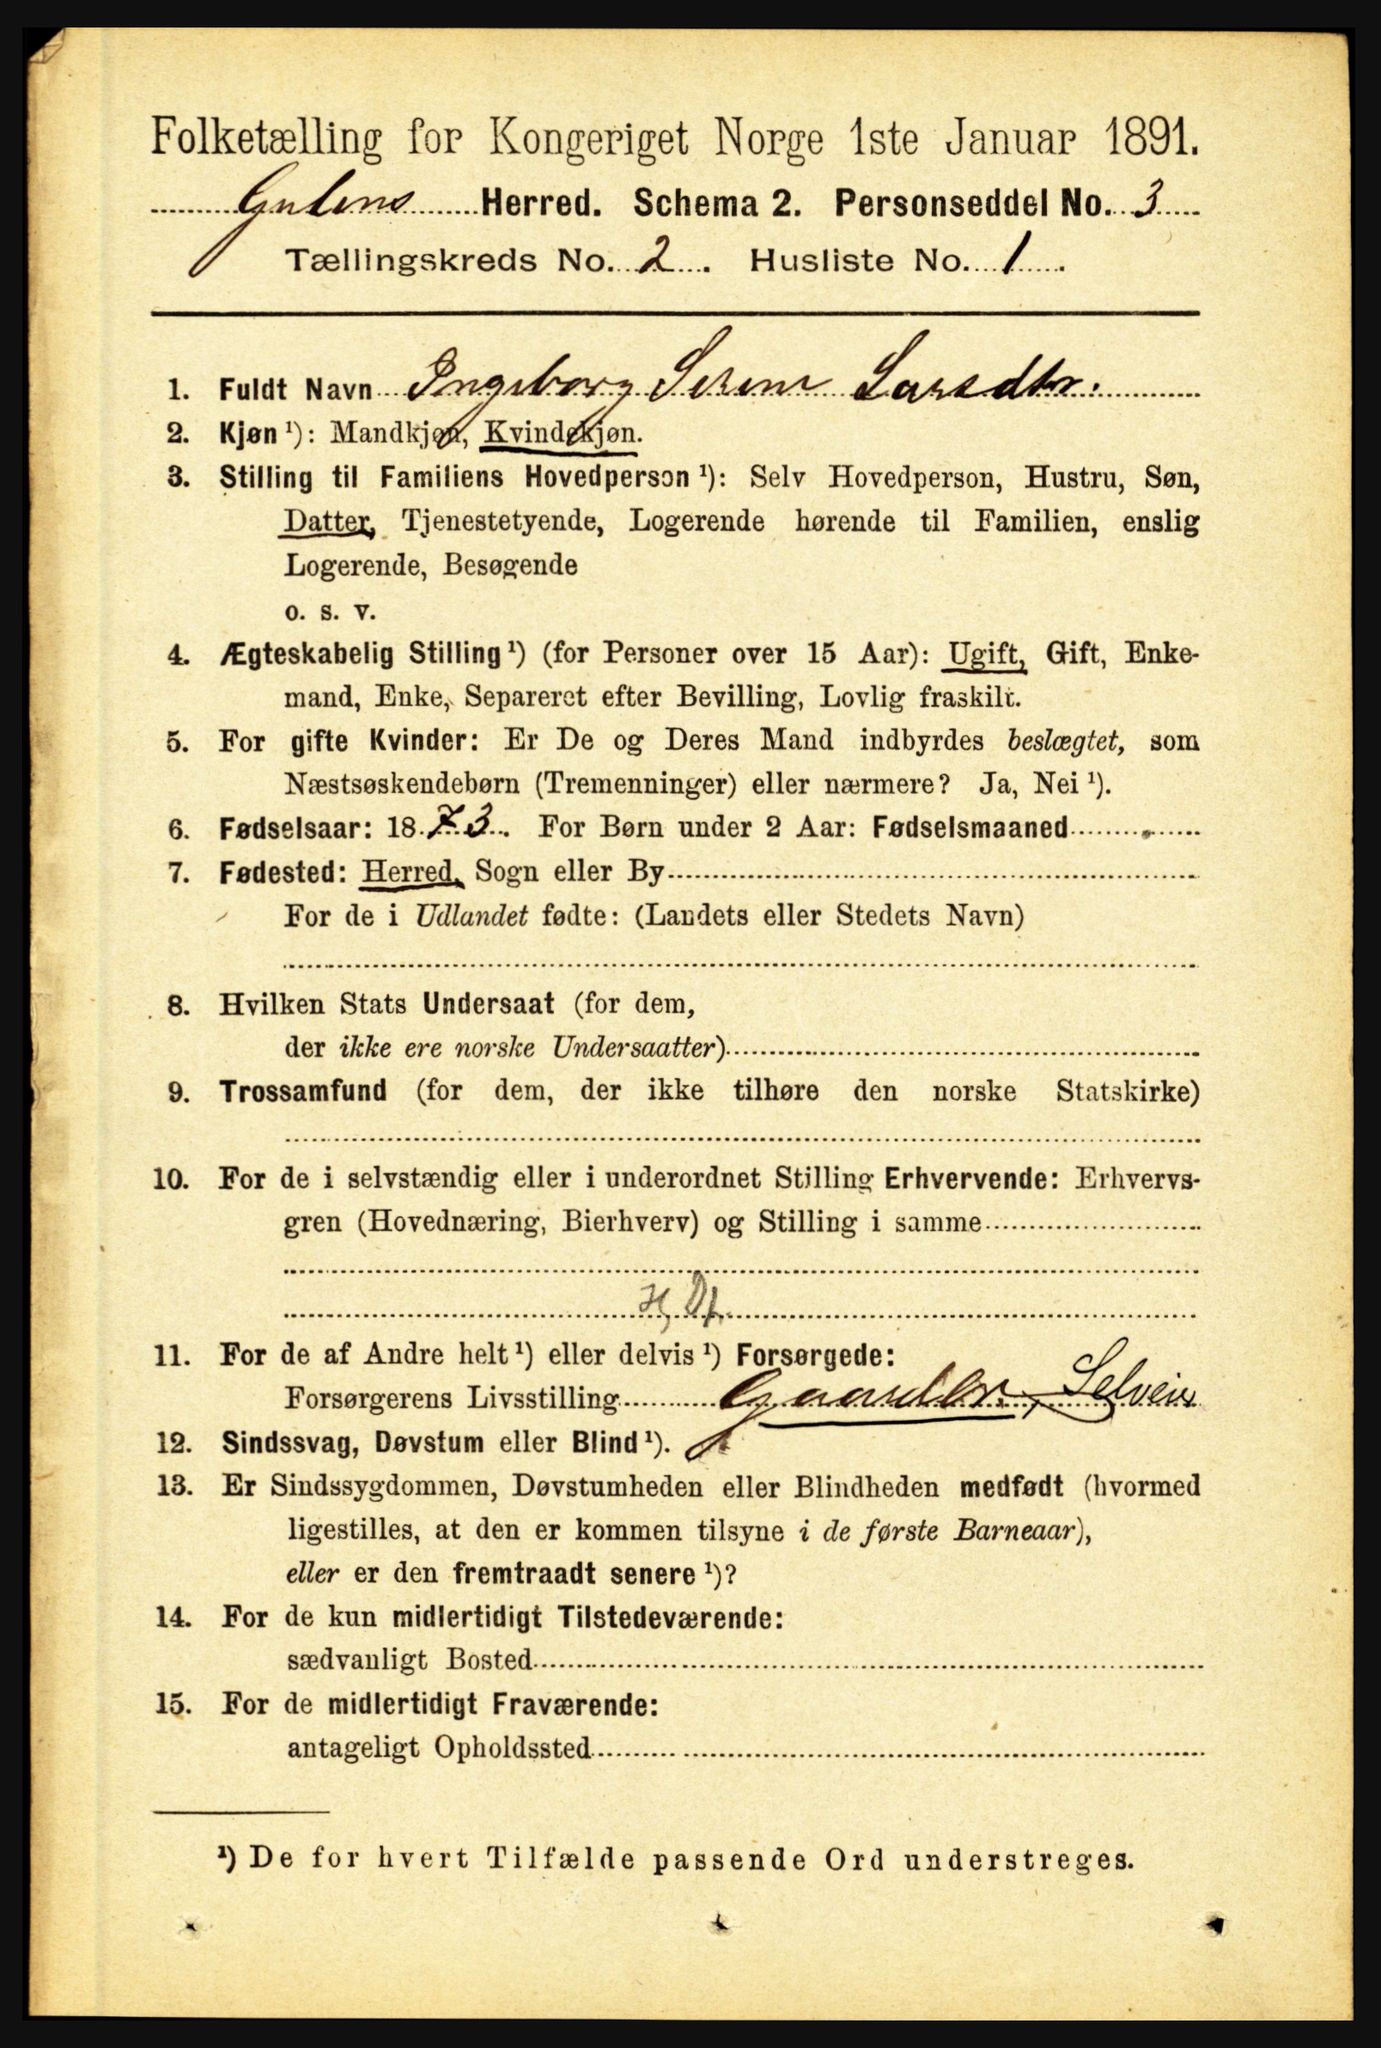 Folketælling for Kongeriget Norge 1ste Januar 1891.
Gulens Herred. Schema 2. Personseddel No. 3
Tællingskreds No. 2. Husliste No. 1.
1. Fuldt Navn Ingeborg Serine Larsdtr.
2. Kjøn ¹): Mandkjøn, Kvindekjøn.
3. Stilling til Familiens Hovedperson ¹): Selv Hovedperson, Hustru, Søn,
Datter, Tjenestetyende, Logerende hørende til Familien, enslig
Logerende, Besøgende
o. s. v.
4. Ægteskabelig Stilling ¹) (for Personer over 15 Aar): Ugift, Gift, Enke-
mand, Enke, Separeret efter Bevilling, Lovlig fraskilt.
5. For gifte Kvinder: Er De og Deres Mand indbyrdes beslægtet, som
Næstsøskendebørn (Tremenninger) eller nærmere? Ja, Nei ¹).
6. Fødselsaar: 1873. For Børn under 2 Aar: Fødselsmaaned
7. Fødested: Herred, Sogn eller By
For de i Udlandet fødte: (Landets eller Stedets Navn)
8. Hvilken Stats Undersaat (for dem,
der ikke ere norske Undersaatter)
9. Trossamfund (for dem, der ikke tilhøre den norske Statskirke)
10. For de i selvstændig eller i underordnet Stilling Erhvervende: Erhvervs-
gren (Hovednæring, Bierhverv) og Stilling i samme
11. For de af Andre helt ¹) eller delvis ¹) Forsørgede:
Forsørgerens Livsstilling Gaardbr. Selveier
12. Sindssvag, Døvstum eller Blind ¹).
13. Er Sindssygdommen, Døvstumheden eller Blindheden medfødt (hvormed
ligestilles, at den er kommen tilsyne i de første Barneaar),
eller er den fremtraadt senere ¹)?
14. For de kun midlertidigt Tilstedeværende:
sædvanligt Bosted
15. For de midlertidigt Fraværende:
antageligt Opholdssted
¹) De for hvert Tilfælde passende Ord understreges.